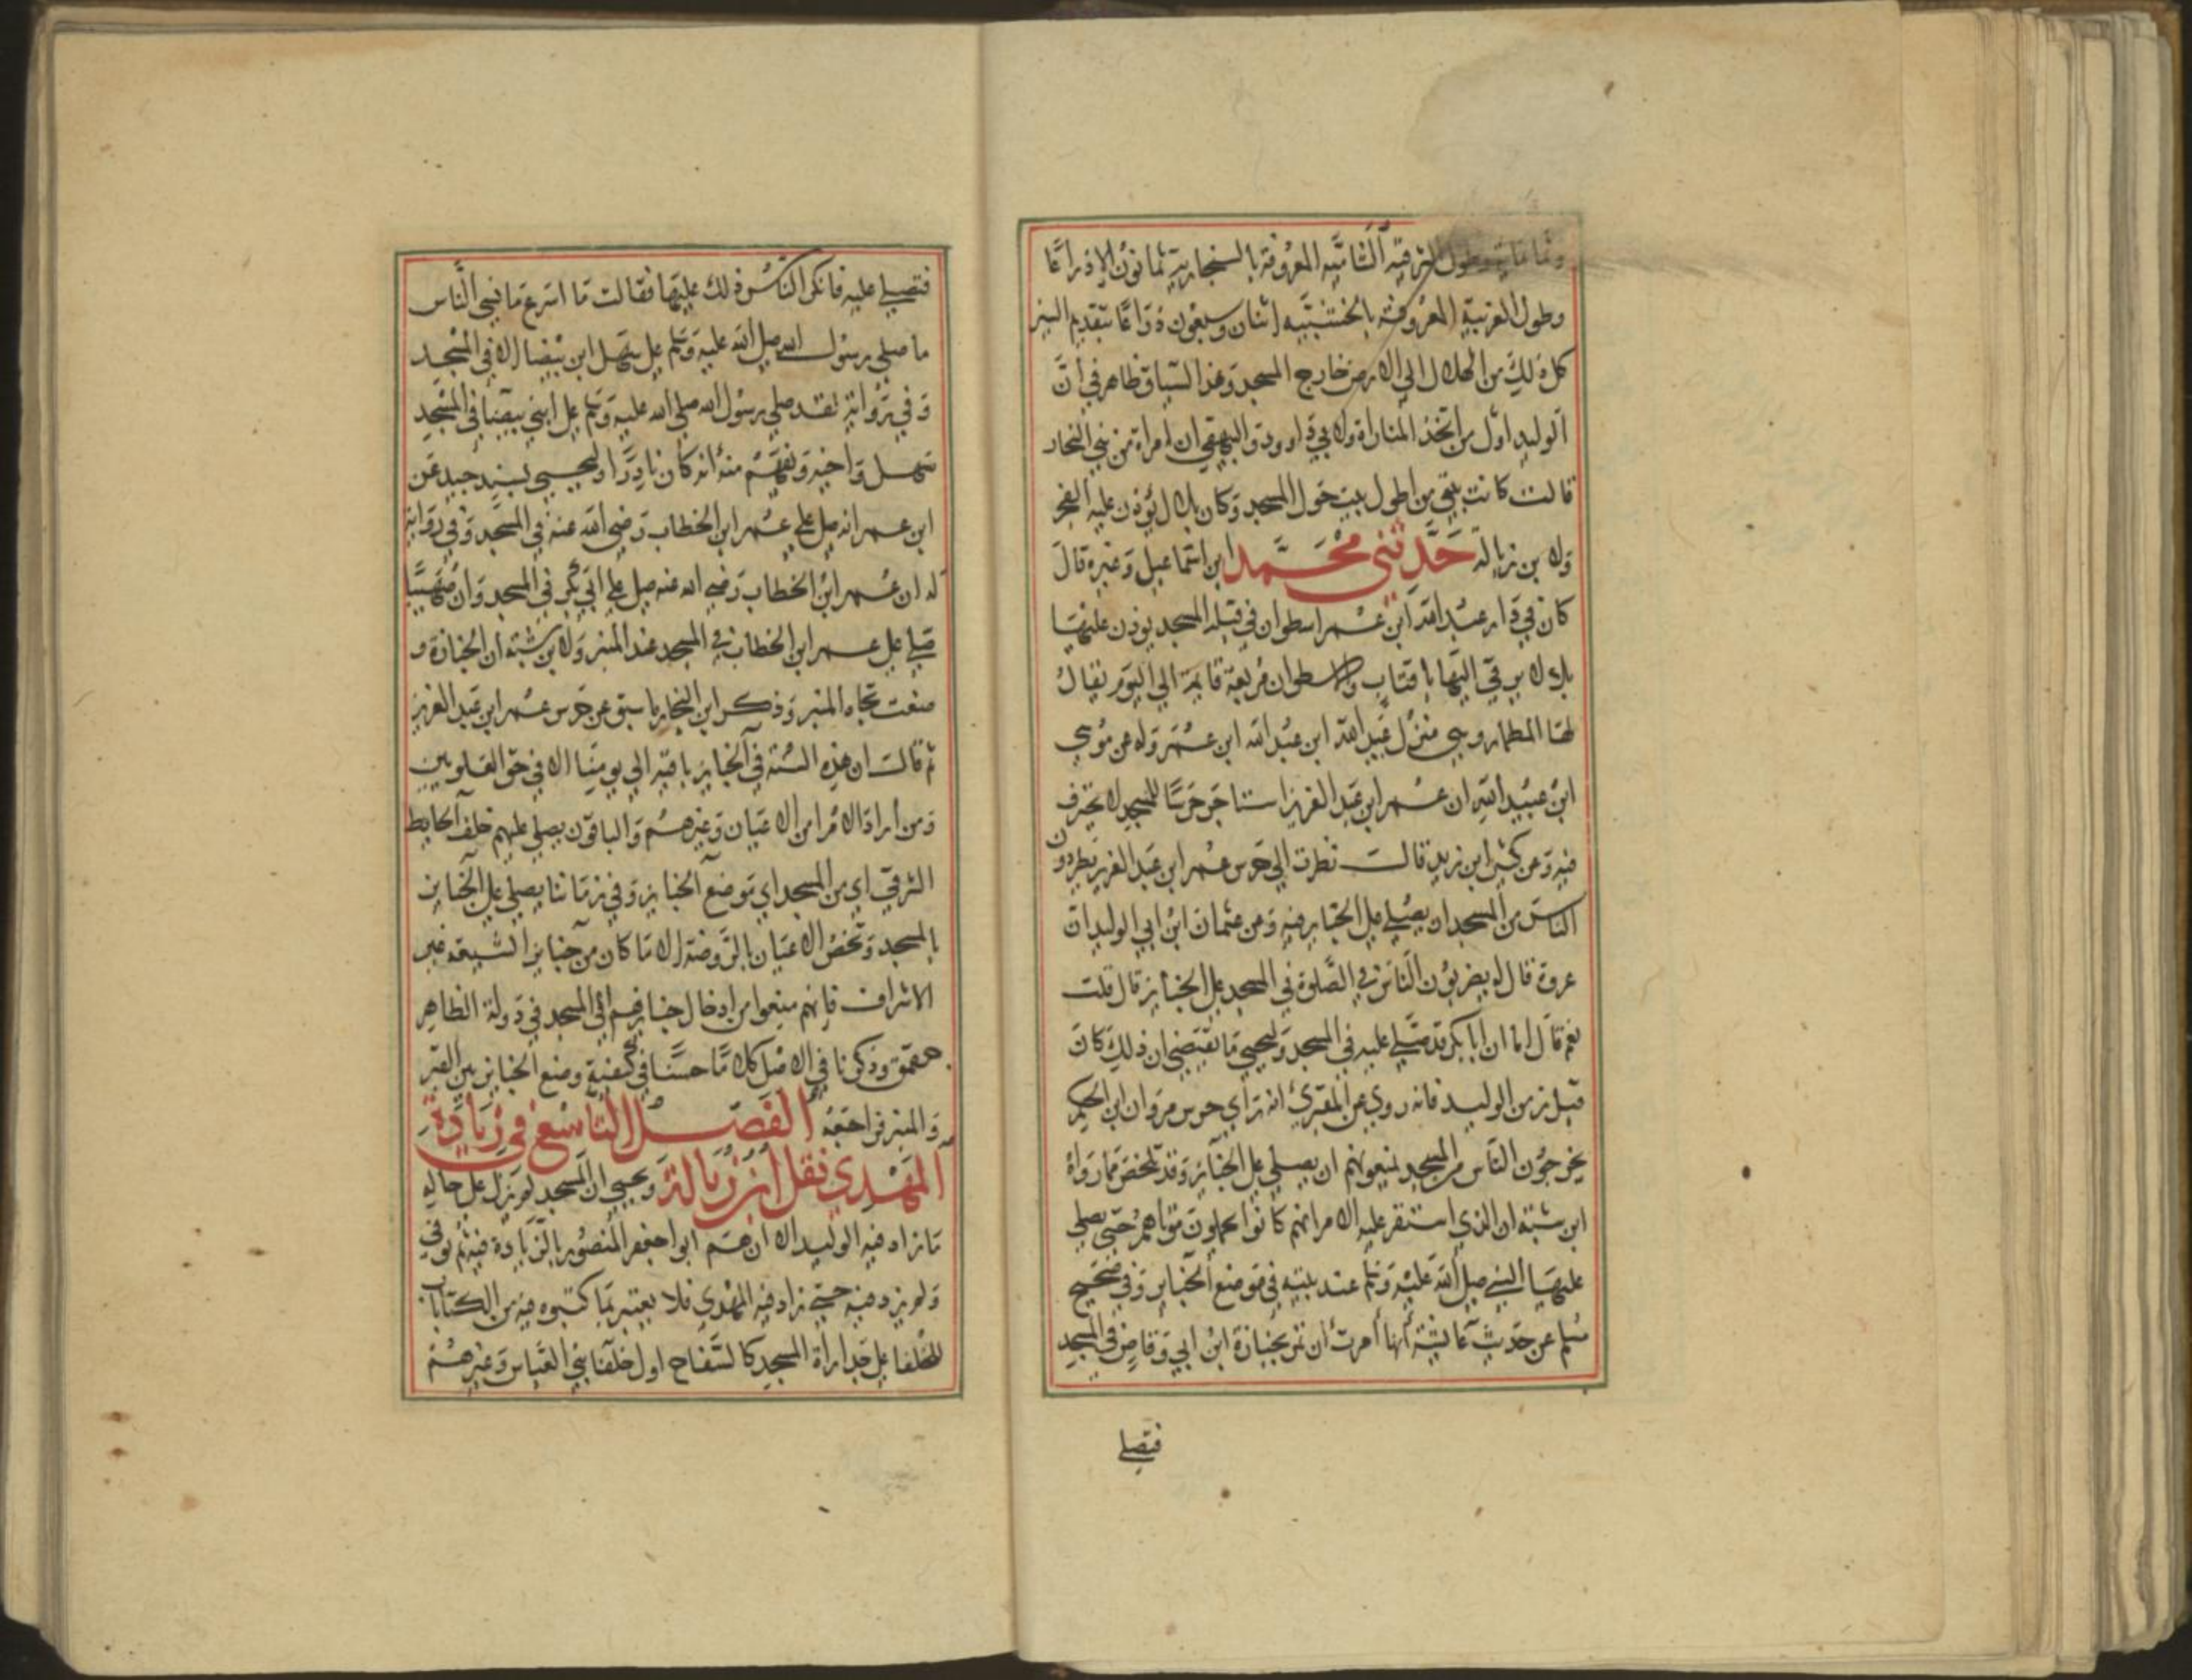 وطول الشرقية الشامية المعروفة بالسنجارية ثمانون الا ذراعا
وطول الغربية المعروفة بالخشبية اثنان وسبعون ذراعا بتقديم السين
كل ذلك من الهلال الي الارض خارج المسجد وهذا السياق ظاهر في ان
الوليد اول من اتخذ المناراة ولابي داوود والبيهقي ان امراة من بني النجار
قالت كانت بيتي من اطول بيت حول المسجد وكان بلال يؤذن عليه الفجر
ولابن زبالة حدثني محمد ابن اسماعيل وغيره قال
كان في دار عبد الله ابن عمر اسطوان في قبلة المسجد يوذن عليها
بلال يرقي اليها باقتاب والاسطوان مربعة قايمة الي اليوم يقال
لها المطمار وهي منزل عبيد الله ابن عبد الله ابن عمر وله عن موسي
ابن عبيد الله ان عمر ابن عبد العزيز استاجر حرسا للمسجد لا يحترف
فيه وعن كثير ابن زيد قال نظرت الي حرس عمر ابن عبد العزيز يطردون
الناس من المسجد ان يصلي علي الجنايز فيه وعن عثمان ابن ابي الوليد ان
عروة قال له يضربون الناس في الصلوة في المسجد علي الجنايز قال قلت
نعم قال اما ان ابا بكر قد صلي عليه في المسجد وليحيي ما يقتضي ان ذلك كان
قبل زمن الوليد فانه روي عن المقبري انه راي حرس مروان ابن الحكم
يخرجون الناس من المسجد ليمنعونهم ان يصلي علي الجنايز وقد تلخص مما رواه
ابن شبة ان الذي استقر عليه الامر انهم كانوا يحملون موتاهم حتي يصلي
عليها النبي صلي الله عليه وسلم عند بيته في موضع الجنايز وفي صحيح
مسلم عن حديث عائشة انها امرت ان تمر بجنازة ابن ابي وقاص في المسجد
فتصلي
فتصلي عليه فانكر الناس ذلك عليها فقالت ما اسرع ما نسي الناس
ما صلي رسول الله صلي الله عليه وسلم علي سهل ابن بيضا الا في المسجد
وفي رواية لقد صلي رسول الله صلي الله عليه وسلم علي ابني بيضا في المسجد
سهل واخيه ونفهم منه انه كان نادرا وليحيي بسند جيد عن
ابن عمر انه صلي علي عمر ابن الخطاب رضي الله عنه في المسجد وفي رواية
له ان عمر ابن الخطاب رضي الله عنه صلي علي ابي بكر في المسجد وان صهيبا
صلي علي عمر ابن الخطاب في المسجد عند المنبر ولابن شبة ان الجنازة و
ضعت تجاه المنبر وذكر ابن النجار ما سبق عن حرس عمر ابن عبد العزيز
ثم قالت ان هذه السنة في الجنايز باقيه الي يومنا الا في حق العلويين
ومن اراد الامرا من الاعيان وغيرهم والباقون يصلي عليهم خلف الحايط
الشرقي اي من المسجد اي موضع الجنايز وفي زماننا يصلي علي الجنايز
بالمسجد وتخص الاعيان بالروضة الا ما كان من جنايز الشيعة غير
الاشراف فانهم منعوا من ادخال جنايزهم الي المسجد في دولة الظاهر
جقمق وذكرنا في الاصل كلاما حسنا في كيفية وضع الجنايز بين القبر
والمنبر فراجعه الفصل التاسع في زيادة
المهدي نقل ابن زبالة ويحيي ان المسجد لم يزل علي حاله
ما زاد فيه الوليد الا ان هم ابو اجعفر المنصور بالزيادة فيه ثم توفي
ولم يزد فيه حتي زاد فيه المهدي فلا يعتبر بما كتبوه فيه من الكتابات
للخلفا علي جدارأة المسجد كالسفاح اول خلفا بني العباس وغيرهم